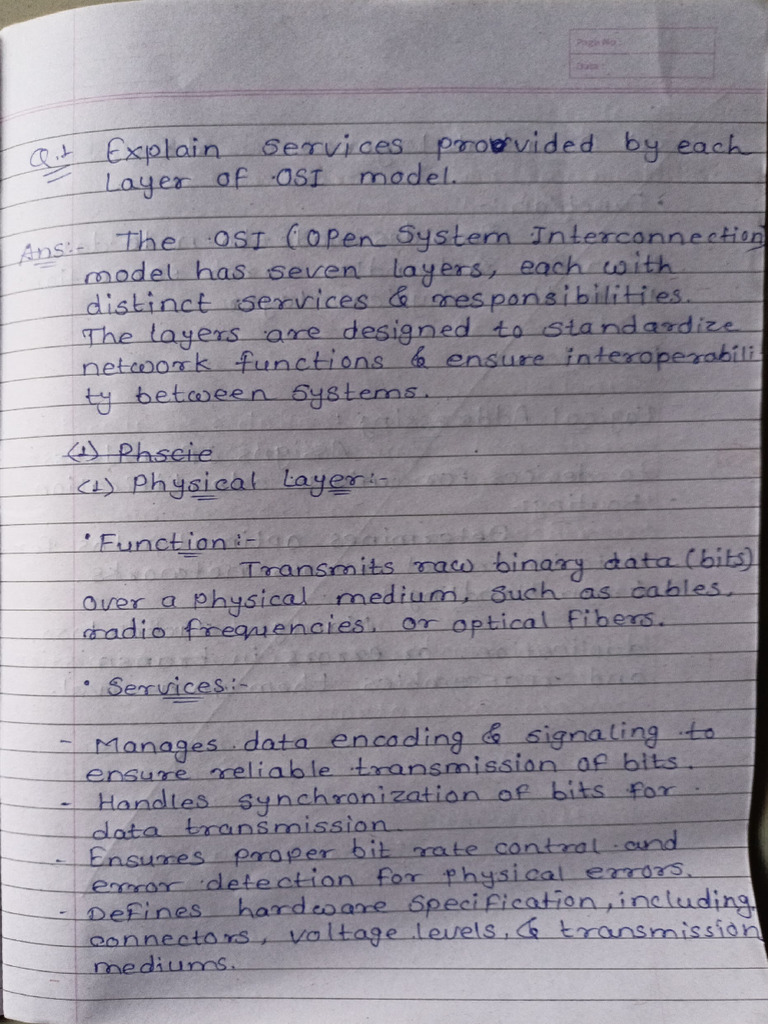 Page No.:
Date:
Q.1 Explain services provided by each
Layer of OSI model.
Ans:- The OSI (Open System Interconnection)
model has seven layers, each with
distinct services & responsibilities.
The layers are designed to standardize
network functions & ensure interoperabili
ty between systems.
(1) Phscie
(1) Physical Layer:-
• Function:-
Transmits raw binary data (bits)
over a physical medium, such as cables,
radio frequencies, or optical fibers.
• Services:-
- Manages data encoding & signaling to
ensure reliable transmission of bits.
- Handles synchronization of bits for
data transmission.
- Ensures proper bit rate control and
error detection for physical errors.
- Defines hardware specification, including
connectors, voltage levels, & transmission
mediums.